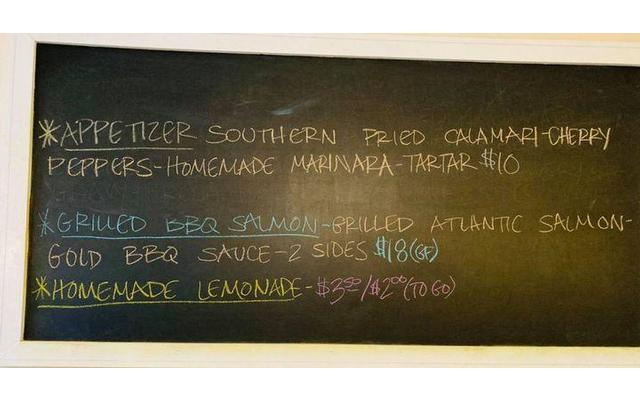 *APPETIZER SOUTHERN FRIED CALAMARI-CHERRY
PEPPERS-HOMEMADE MARINARA-TARTAR $10
*GRILLED BBQ SALMON-GRILLED ATLANTIC SALMON-
GOLD BBQ SAUCE-2 SIDES $18(GF)
*HOMEMADE LEMONADE-$3.50/$2.00(TO GO)